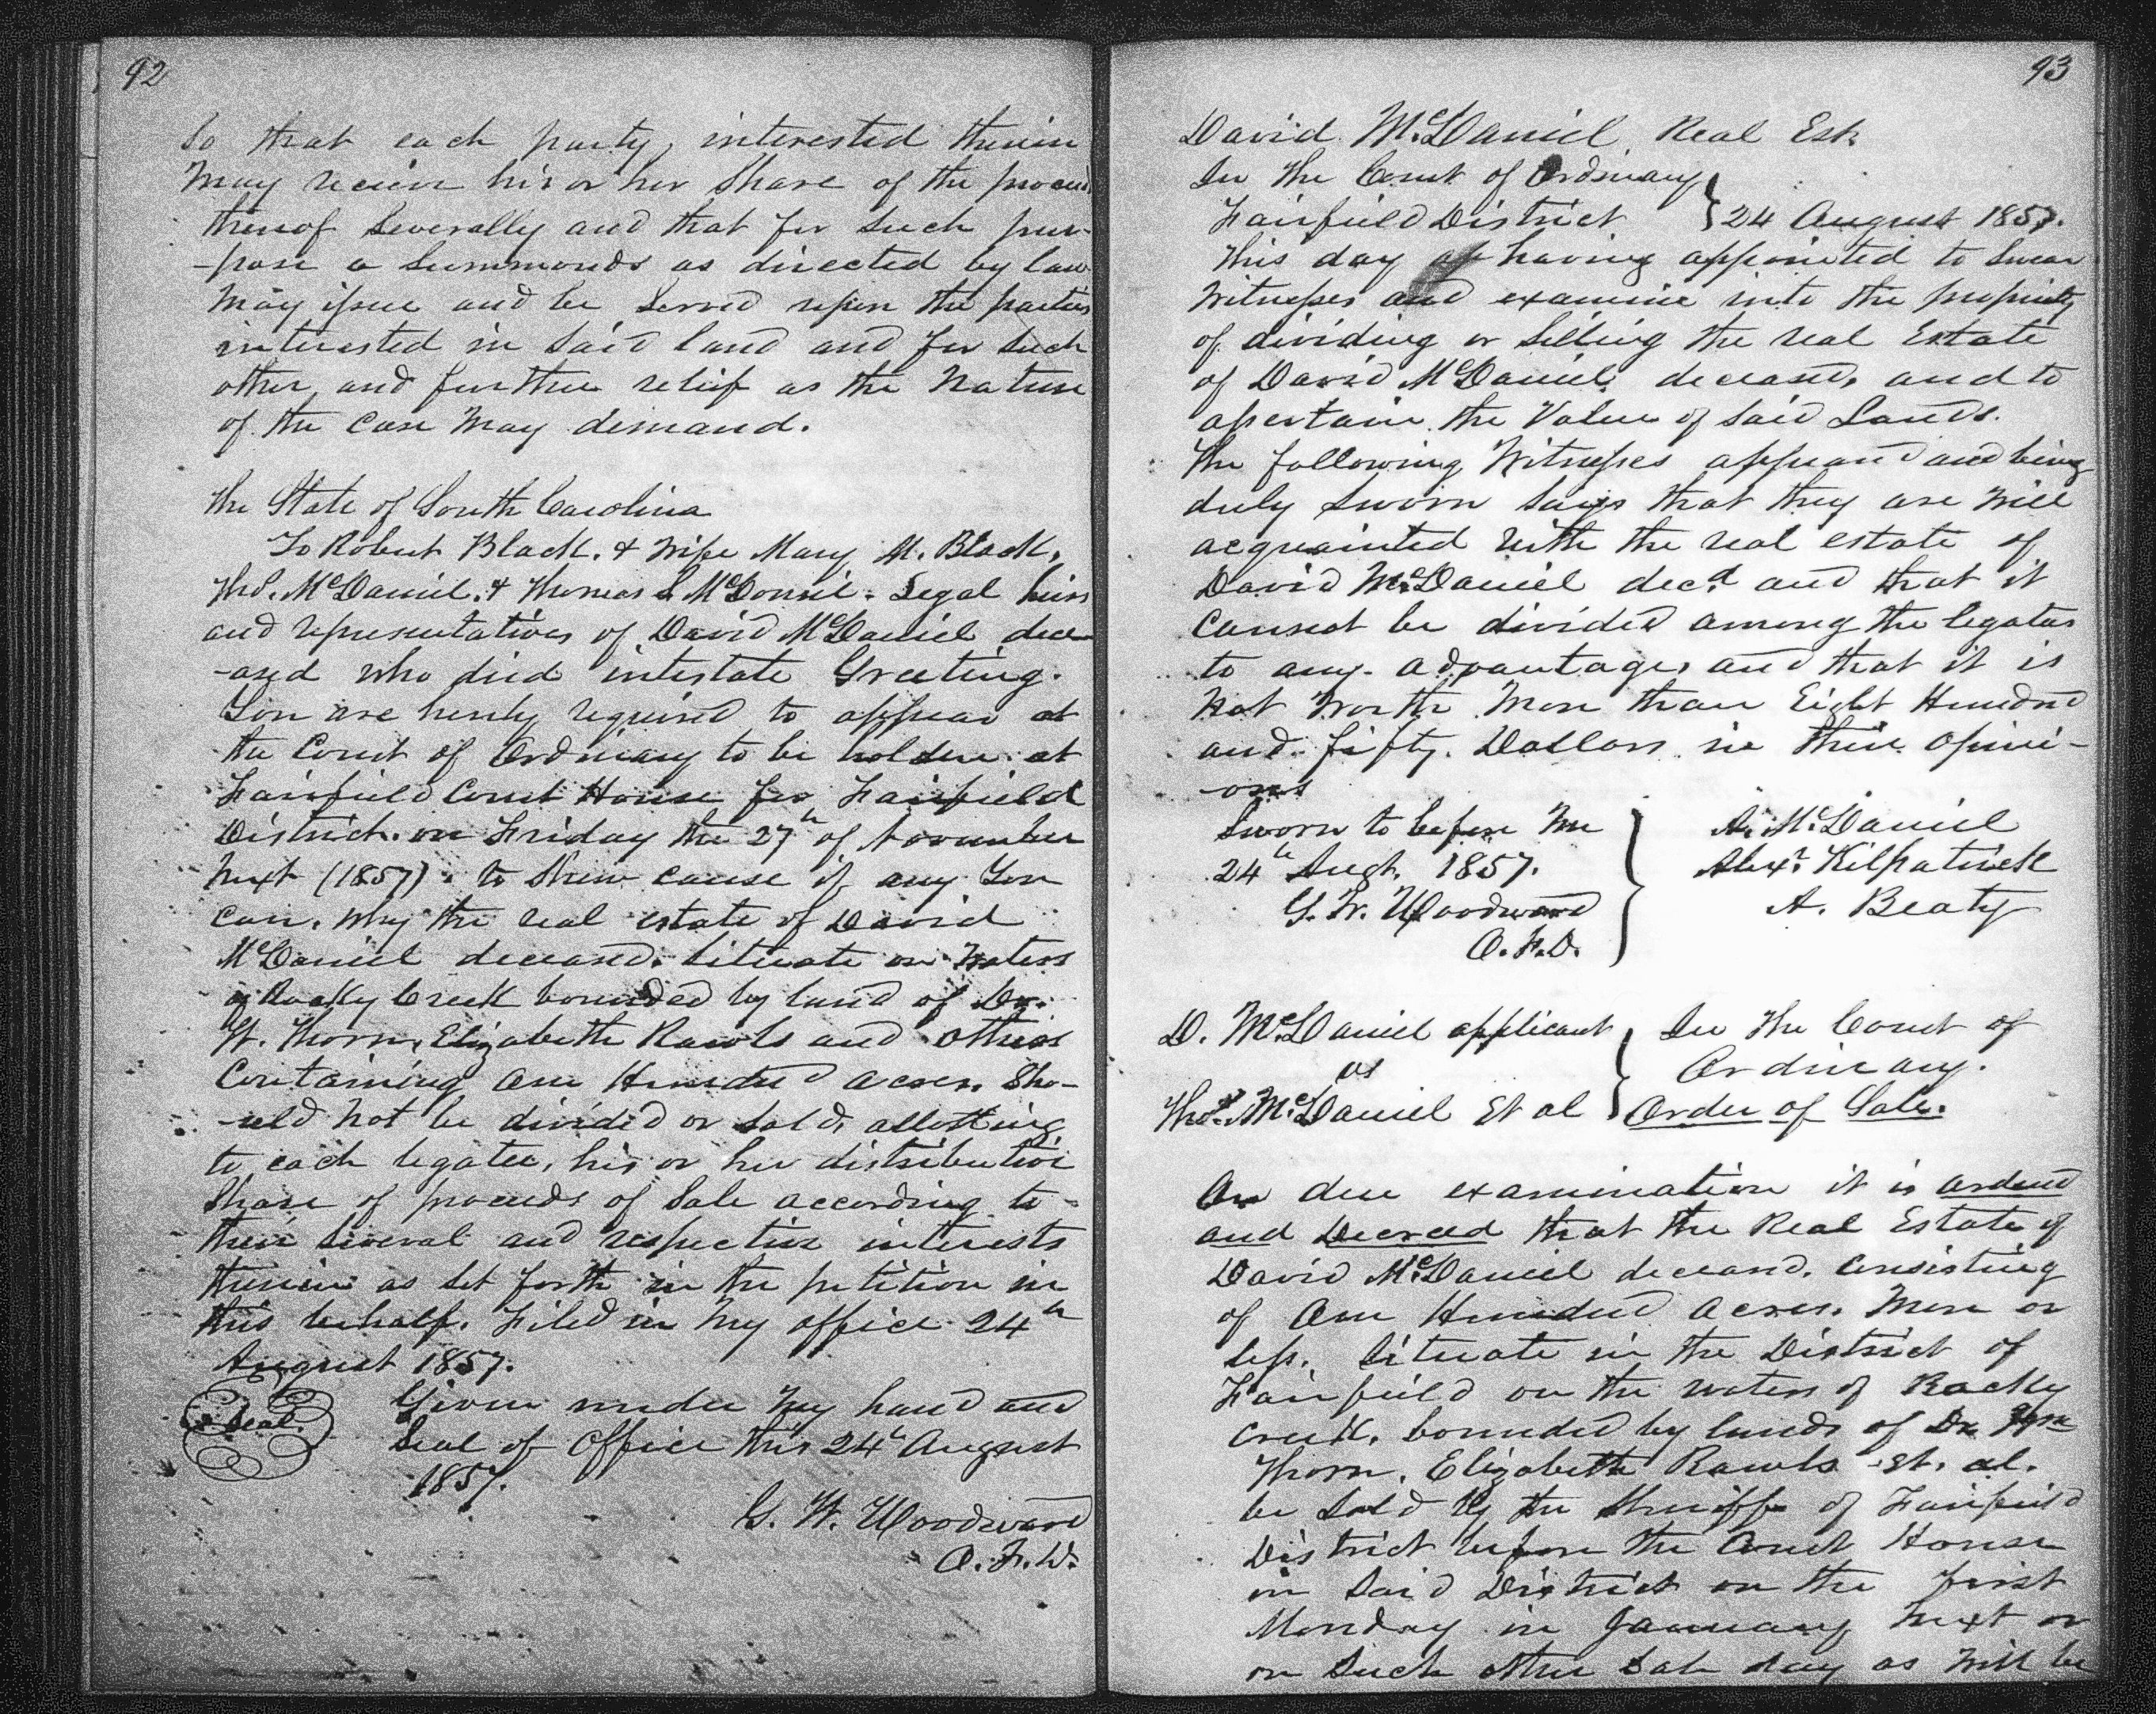 92
So that each party, interested therein
May receive his or her Share of the proceeds
thereof Severally and that for Such pur-
-pose a Summonds as directed by law
May issue and be Served upon the parties
interested in Said land and for Such
other and further relief as the Nature
of the Case May demand.
The State of South Carolina
To Robert Black. & Wife Mary M. Black,
Thos. McDaniel. & Thomas S. McDaniel. Legal heirs
and representatives of David McDaniel dece
-ased who died intestate Greeting.
You are hereby required to appear at
the Court of Ordinary to be holden at
Fairfield Court House for Fairfield
District. on Friday the 27th of November
Next (1857). to Shew cause if any You
can. Why the real estate of David
McDaniel deceased. Situate on Waters
of Rocky Creek bounded by land of Dr.
W. Thorn, Elizabeth Rawls and others
Containing One Hundred acres. Sho-
-uld Not be divided or Sold, allotting
to each legatee, his or her distributive
Share of proceeds of Sale according to
their Several and respective interests
therein as Set forth in the petition in
this behalf. Filed in My office 24th
August 1857.
Seal.
Given under My hand and
Seal of Office this 24th August
1857.
G. W. Woodward
O. F. D.
93
David McDaniel, Real Est.
In The Court of Ordinary
Fairfield District } 24 August 1857.
This day having appointed to Swear
Witnesses and examine into the propriety
of dividing or Selling the real Estate
of David McDaniel deceased, and to
assertain the Value of Said Lands.
The following Witnesses appeared and being
duly Sworn Says that they are Well
acquainted With the real estate of
David McDaniel decd. and that it
Cannot be divided among the legatees
to any advantage, and that it is
Not Worth More than Eight Hundred
and fifty. Dollars in their Opini-
-ons
Sworn to before Me
24th Augt. 1857.
G. W. Woodward
O. F. D.
A. McDaniel
Alexr. Kilpatrick
A. Beaty
D. McDaniel applicant
vs
Thos. McDaniel Et al
In The Court of
Ordinary.
Order of Sale.
On due examination it is ordered
and Decreed that the Real Estate of
David McDaniel deceased. Consisting
of One Hundred acres. More or
less. Situate in the District of
Fairfield on the waters of Rocky
Creek. bounded by lands of Dr. Wm
Thorn, Elizabeth Rawls et. al.
be Sold By the Sheriff of Fairfield
District before the Court House
in Said District on the first
Monday in January Next or
on Such other Sale day as Will be